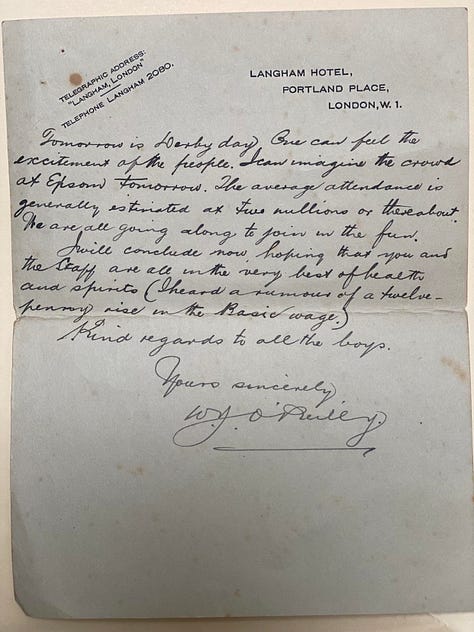 TELEGRAPHIC ADDRESS:
"LANGHAM, LONDON"
TELEPHONE LANGHAM 2080.
LANGHAM HOTEL,
PORTLAND PLACE,
LONDON, W. 1.
Tomorrow is Derby day. One can feel the
excitement of the people. I can imagine the crowd
at Epsom tomorrow. The average attendance is
generally estimated at two millions or thereabout.
We are all going along to join in the fun.
I will conclude now, hoping that you and
the Staff are all in the very best of health
and spirits (I heard a rumour of a twelve-
penny rise in the Basic wage.)
Kind regards to all the boys.
Yours sincerely
W. J. O'Reilly.